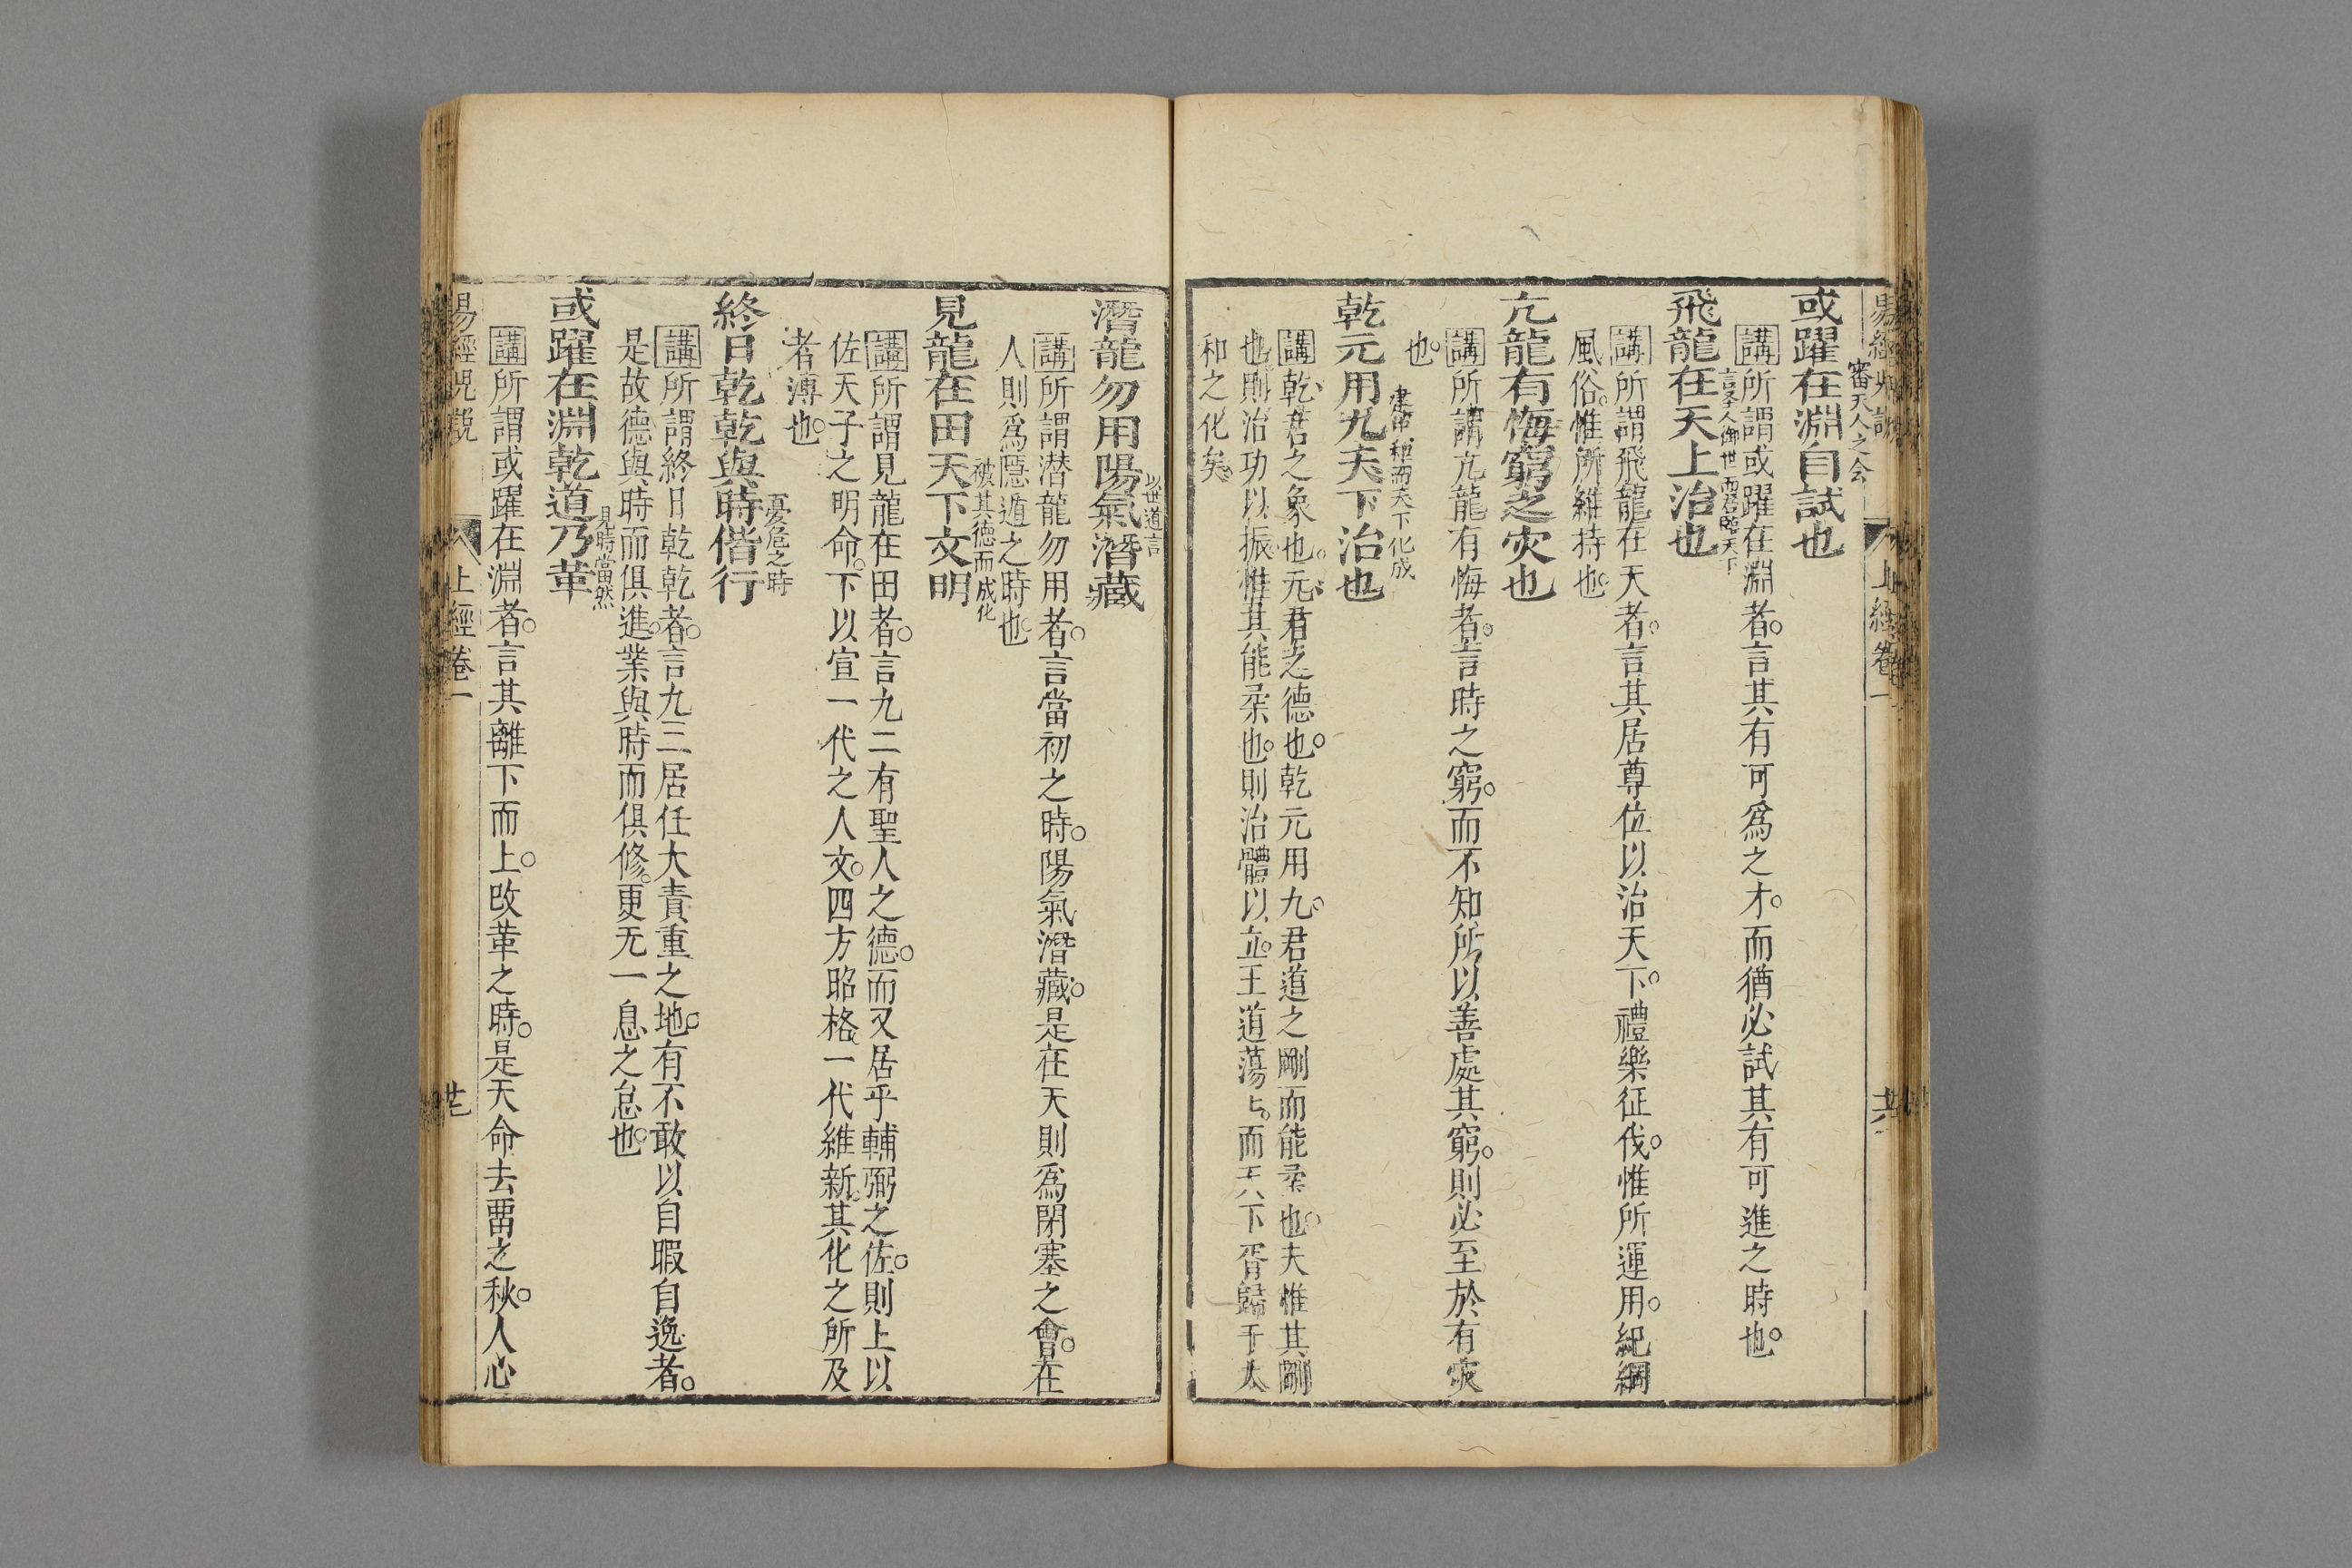 審天人之会
或躍在淵自試也
講所謂或躍在淵者。言其有可爲之才。而猶必試其有可進之時也。
言圣人御世而君臨天下
飛龍在天上治也
講所謂飛龍在天者。言其居尊位以治天下。禮樂征伐。惟所運用。紀綱
風俗。惟所維持也。
亢龍有悔窮之灾也
講所謂亢龍有悔者。言時之窮。而不知所以善處其窮。則必至於有灾
也。
而天下化成
乾元用九天下治也
講乾君之象也。元君之德也。乾元用九。君道之剛而能柔也。夫惟其剛
也則治功以振。惟其能柔也。則治體以立。王道蕩〻。而天下胥歸于太
和之化矣
以世道言
潛龍勿用陽氣潛藏
講所謂潜龍勿用者。言當初之時。陽氣潛藏。是在天則爲閉塞之會。在
人則爲隱遁之時也。
被其德而成化
見龍在田天下文明
講所謂見龍在田者。言九二有聖人之德。而又居乎輔弼之佐。則上以
佐天子之明命。下以宣一代之人文。四方昭格。一代維新。其化之所及
者溥也。
憂危之時
終日乾乾與時偕行
講所謂終日乾乾者。言九三居任大責重之地。有不敢以自暇自逸者。
是故德與時而俱進。業與時而俱修。更无一息之怠也。
見時當然
或躍在淵乾道乃革
講所謂或躍在淵者。言其離下而上。改革之時。是天命去畱之秋。人心
上經卷一